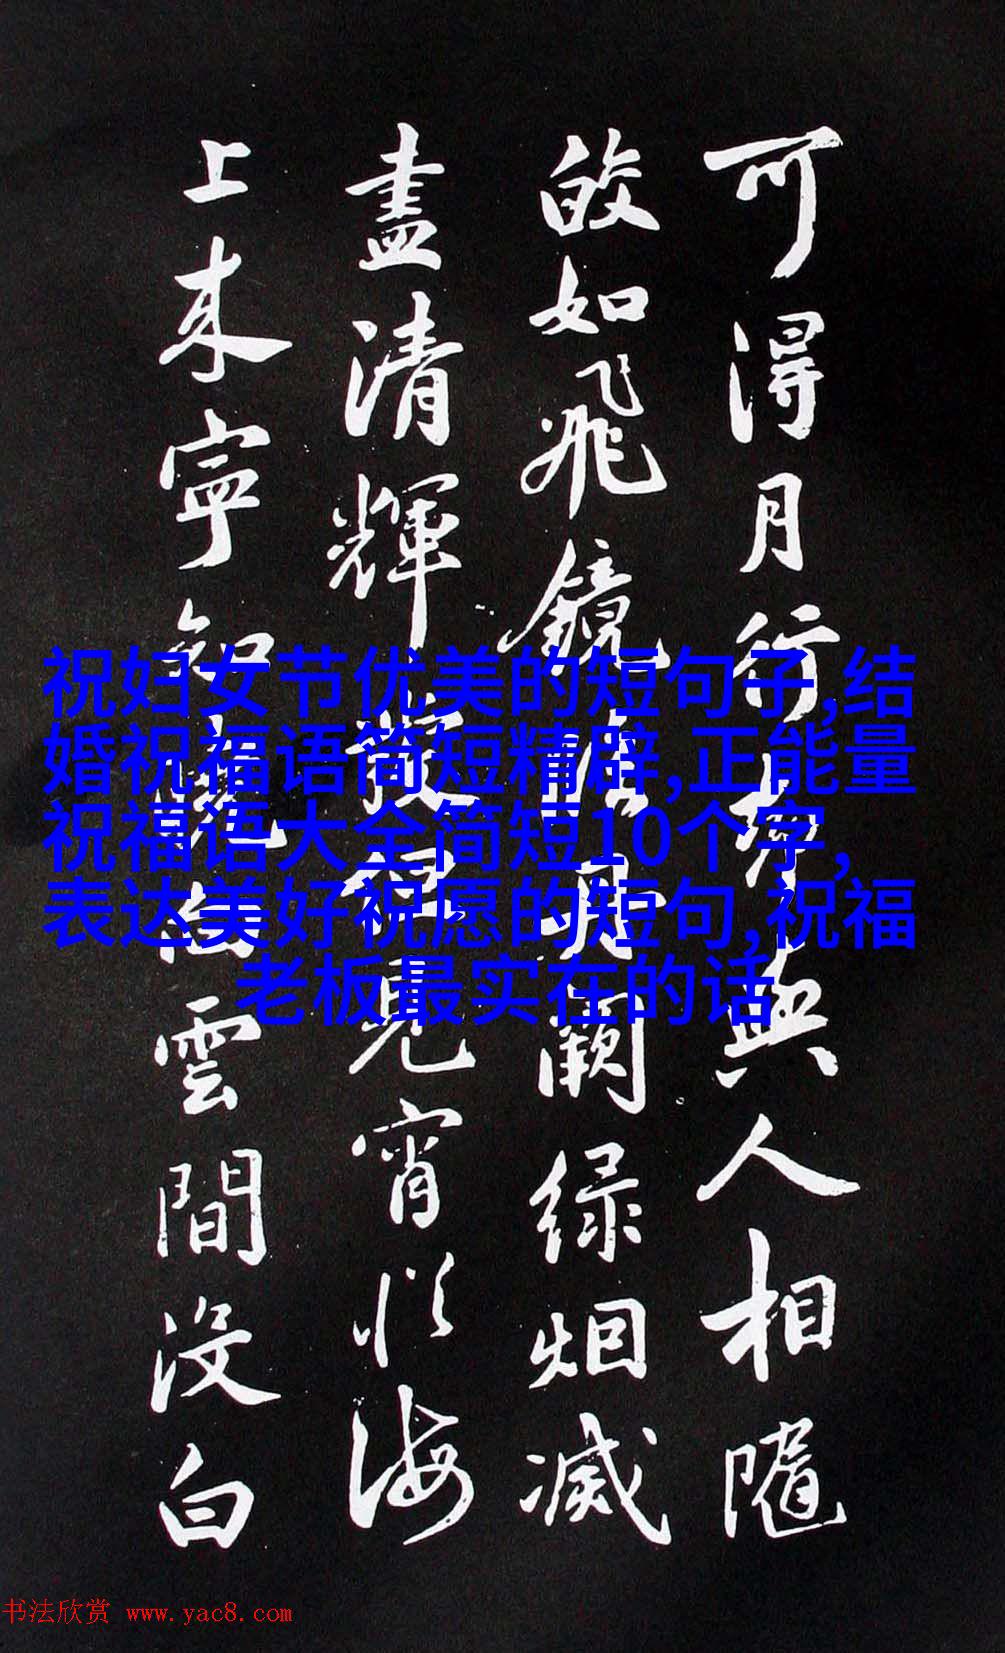 可得月行却與人相隨
皎如飛鏡臨丹闕绿烟滅
盡清輝發但見宵從海
上来寧知曉向雲間没白
祝妇女节优美的短句子,结
婚祝福语简短精辟,正能量
祝福语大全简短10个字,
表达美好祝愿的短句,祝福
老板最实在的话
书法欣赏 www.yac8.com